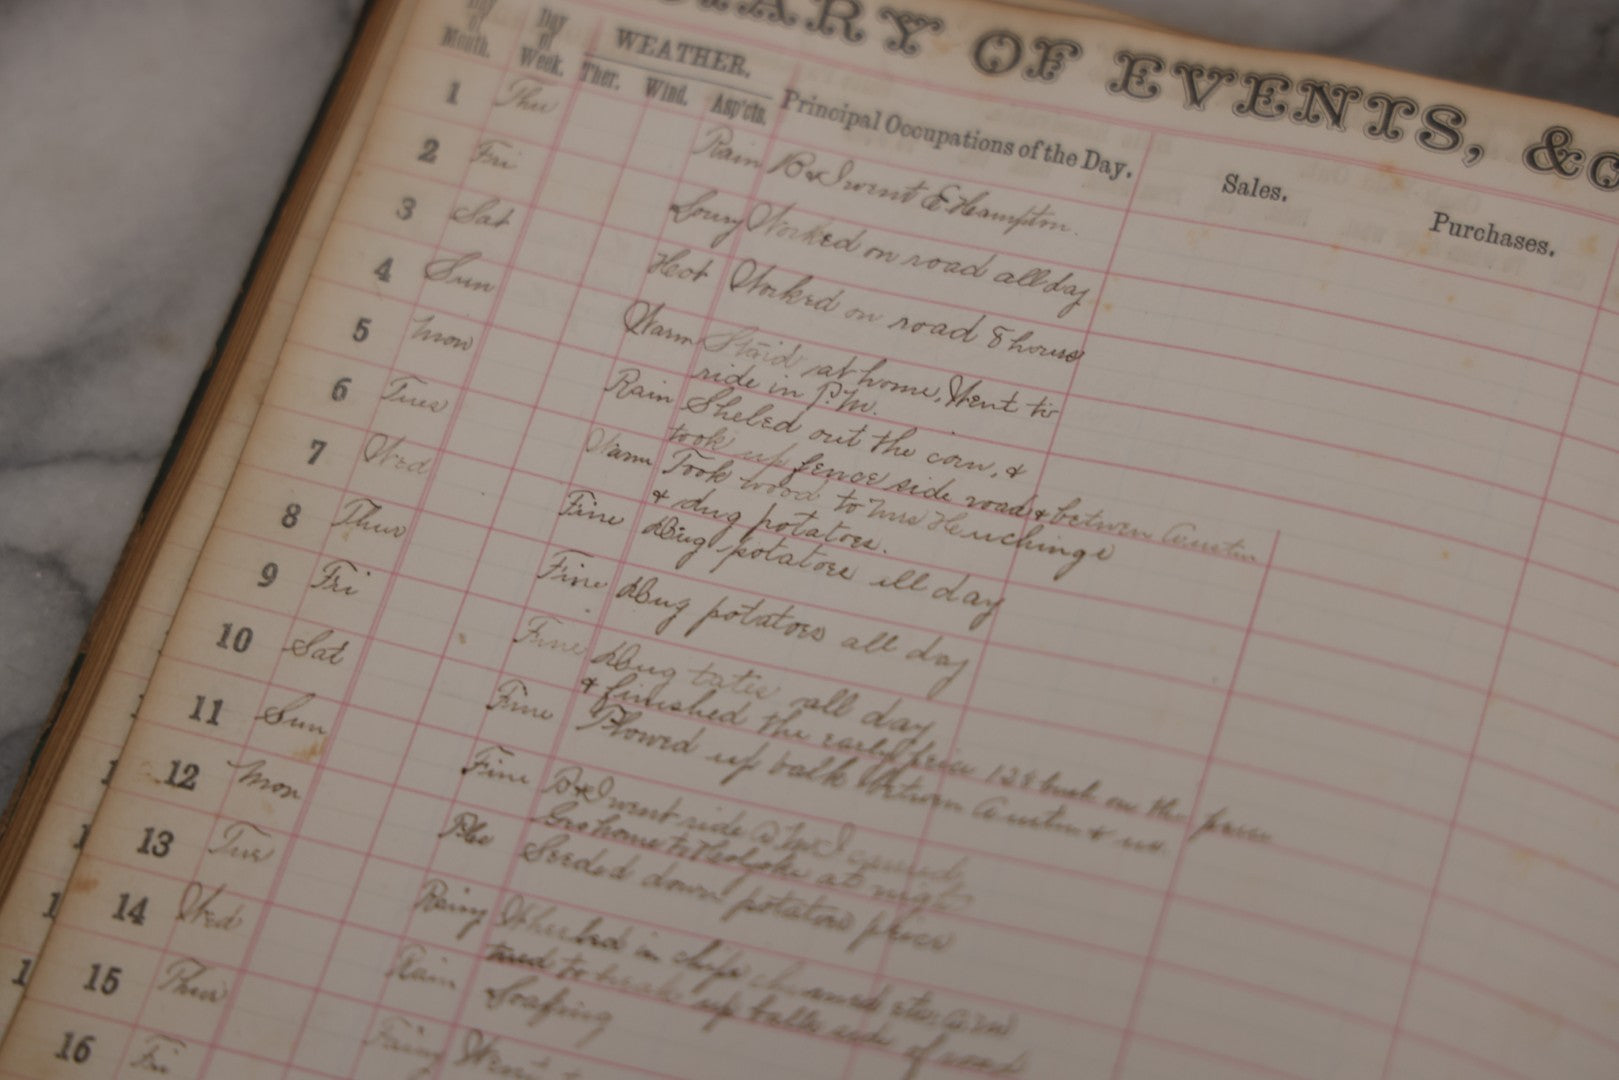 DIARY OF EVENTS, &c
Day of Month.
Day of Week.
WEATHER.
Ther. Wind. Asp'cts.
Principal Occupations of the Day.
Sales.
Purchases.
1 Thu Rain B & I went E Hampton.
2 Fri Loury Worked on road all day
3 Sat Hot Worked on road 8 hours
4 Sun Warm Staid at home, Went to
ride in P.M.
5 Mon Rain Sheled out the corn, &
took up fence side road & between Austin
6 Tues Warm Took wood to Mrs
& dug potatoes.
7 Wed Fine Dug potatoes all day
8 Thur Fine Dug potatoes all day
9 Fri Fine Dug tates all day
& finished the early piece 128 bush on the piece
10 Sat Fine Plowed up balk between Austin & us.
11 Sun Fine B & I went ride
home to at night
12 Mon Seeded down potatoe piece
13 Tue Rainy Wheeled in chips
tried to break up side of road
14 Wed Rain Soaking
15 Thur Went
16 Fri